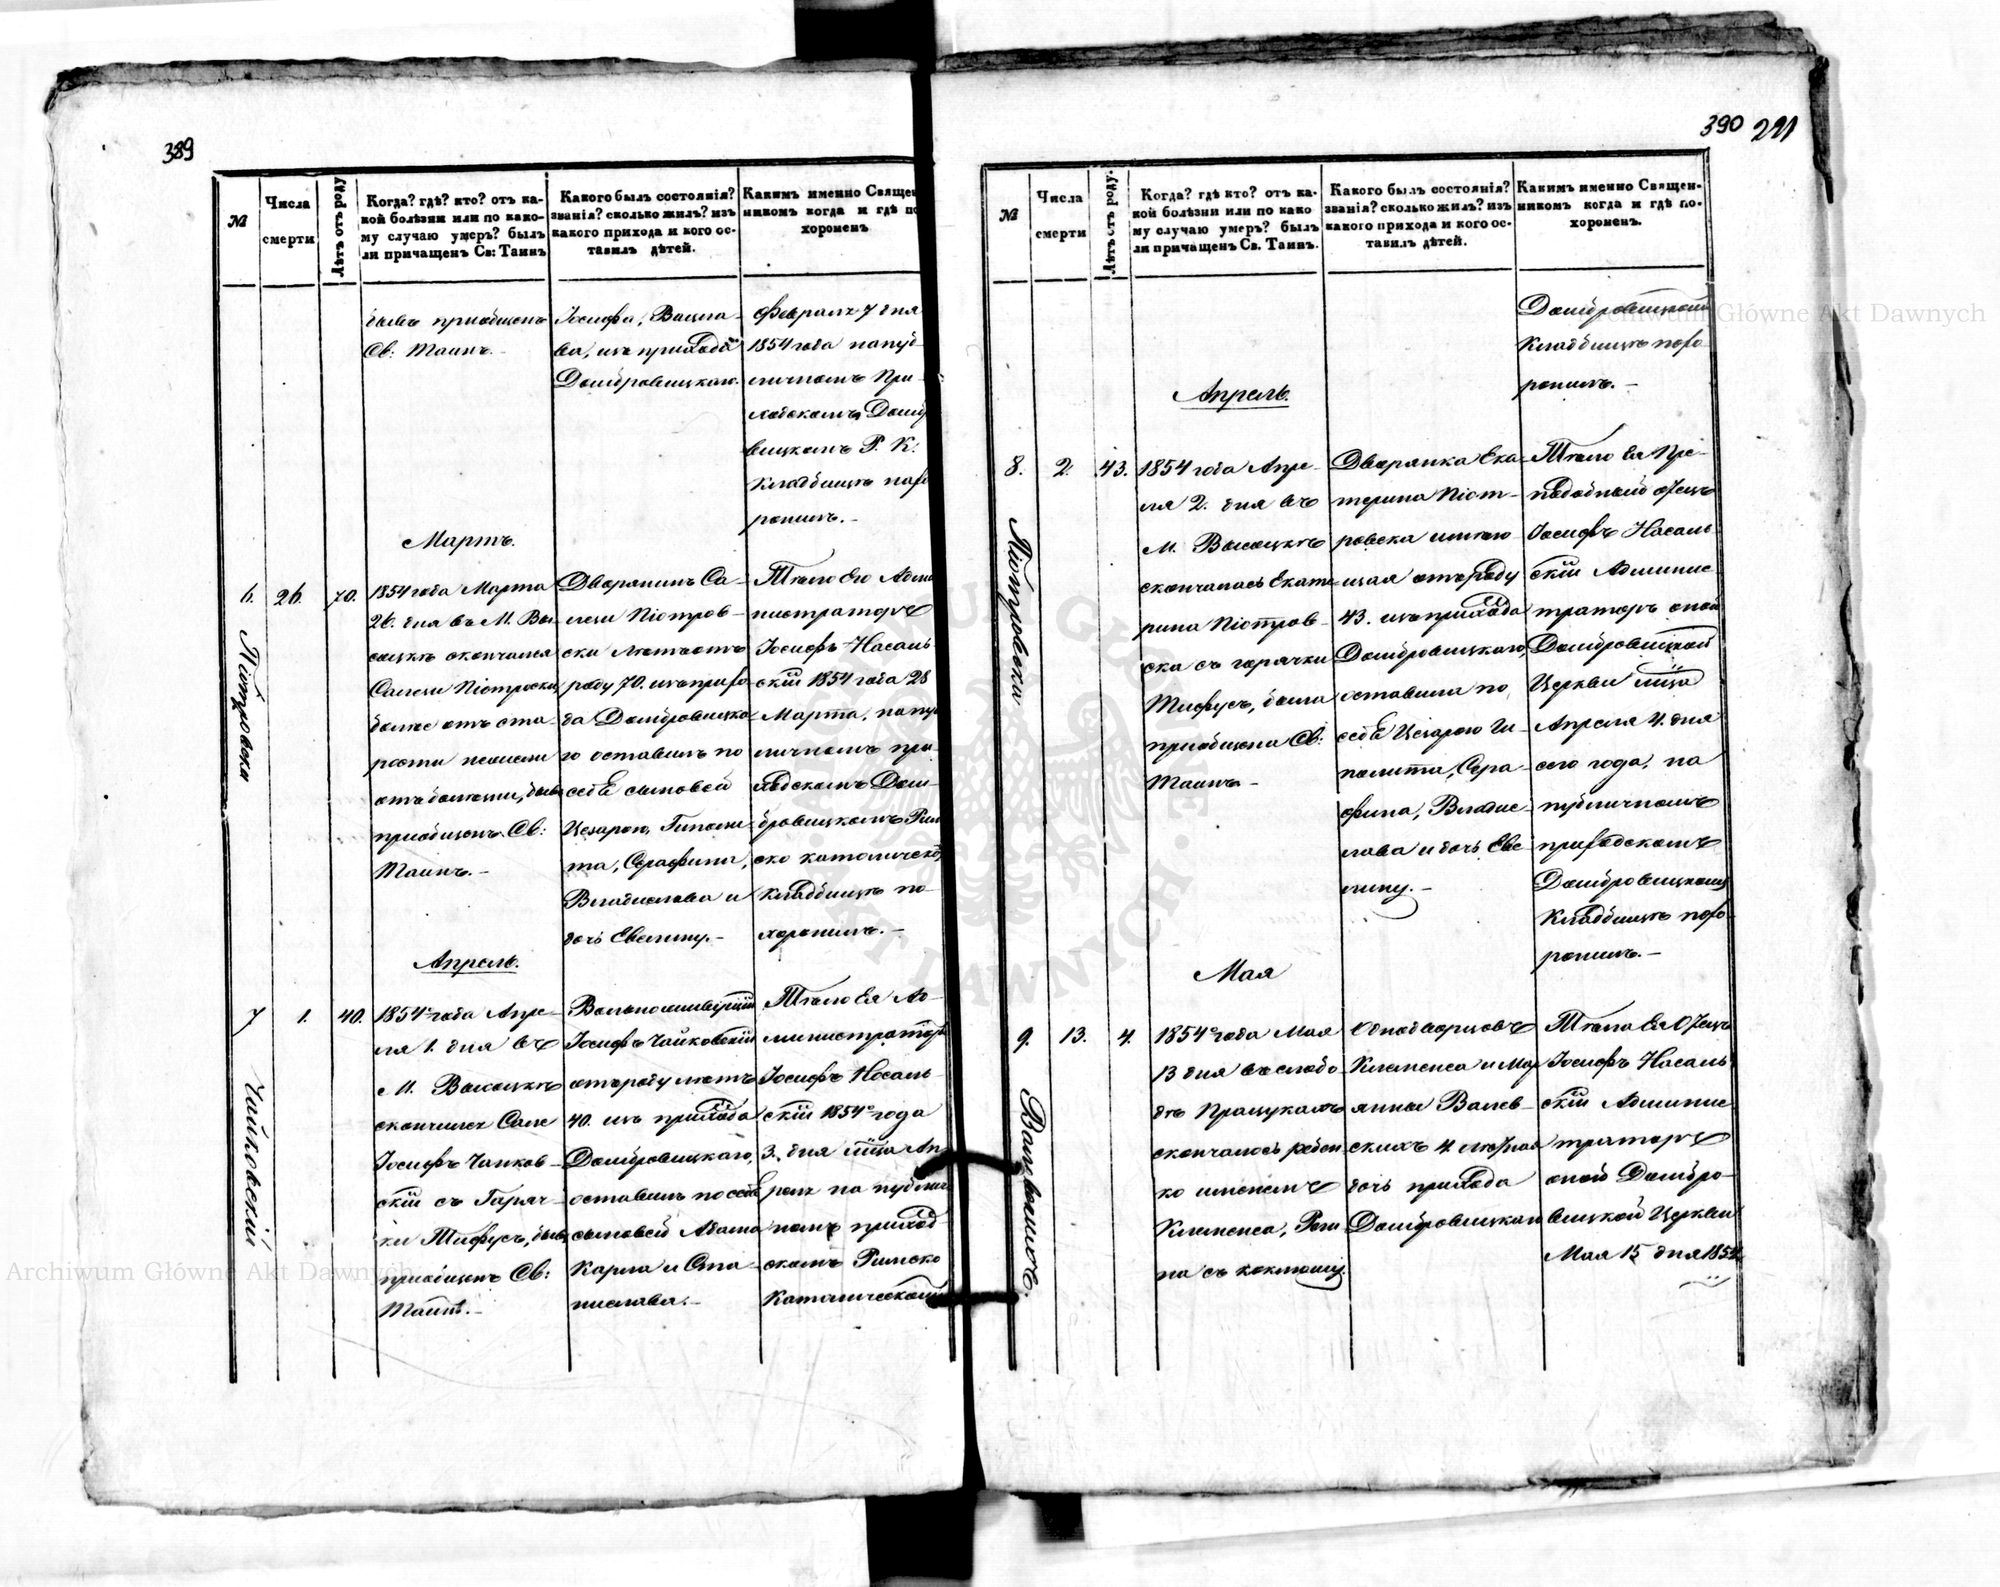 389
№
Числа
смерти
Лѣтъ отъ роду
Когда? гдѣ? кто? отъ ка-
кой болѣзни или по како-
му случаю умеръ? былъ
ли причащенъ Св: Таинъ
Какого былъ состоянія?
званія? сколько жилъ? изъ
какого прихода и кого ос-
тавилъ дѣтей.
Какимъ именно Священ
никомъ когда и гдѣ по
хороненъ
бывъ приобщенъ
Св: Таинъ.-
Іосифа, Вацла-
ва, изъ прихода
Домбровицкаго.
Февраля 7 дня
1854 года на пуб-
личномъ При-
ходскомъ Домб
вицкомъ Р. К.
Кладбищѣ похо
ронилъ.-
Мартъ.
6.
26.
70.
Піотровски
1854 года Марта
26. дня въ М. Вы-
соцкѣ скончался
Салези Піотровски
болѣе отъ ста-
рости нежели
отъ болѣзни, бывъ
приобщенъ Св:
Таинъ.-
Дворянинъ Са-
лези Піотров-
ски лѣтъ отъ
роду 70. изъ прихо-
да Домбровицка-
го оставилъ по
себѣ сыновей
Цезарого, Гиполи-
та, Серафина,
Владислава и
дочь Евелину.-
Тѣло Его Адми
нистраторъ
Іосифъ Насаль
скій 1854 года 28
Марта, на пуб
личномъ при-
ходскомъ Дом-
бровицкомъ Рим
ско католическо
Кладбищѣ по-
хоронилъ.-
Апрель.
7
1.
40.
Чайковскій
1854го года Апре-
ля 1. дня въ
М. Высоцкѣ
скончился
Іосифъ Чайков-
скій съ Гаряч-
ки Тифусъ, бывъ
приобщенъ Св:
Таинъ.-
Іосифъ Чайковскій
отъ роду лѣтъ
40. изъ прихода
Домбровицкаго,
оставилъ по себѣ
сыновей Адама
Карла и Ста-
нислава.-
Тѣло Ея Ад-
министраторъ
Іосифъ Насаль-
скій 1854го года
3. дня мца Ап
реля на публич
номъ приход-
скомъ Римско
Католическомъ
390 291
№
Числа
смерти
Лѣтъ отъ роду.
Когда? гдѣ кто? отъ ка-
кой болѣзни или по како
му случаю умеръ? былъ
ли причащенъ Св. Таинъ.
Какого былъ состоянія?
званія? сколько жилъ? изъ
какого прихода и кого ос-
тавилъ дѣтей.
Какимъ именно Священ-
никомъ когда и гдѣ по-
хороненъ.
Домбровицкомъ
Кладбищѣ похо-
ронилъ.-
Апрель.
8.
2.
43.
Піотровска
1854 года Апре-
ля 2. дня въ
М. Высоцкѣ
скончалась Екате-
рина Піотров-
ска съ горячки
Тифусъ, была
приобщена Св:
Таинъ.-
Дворянка Ека-
терина Піот-
ровска имѣю-
щая отъ роду
43. изъ прихода
Домбровицкаго,
оставила по
себѣ Цезарого Ги-
полита, Сера-
фина, Владис-
лава и дочь Еве-
лину.-
Тѣло Ея Пре-
подобный отецъ
Іосифъ Насаль-
скій Админис-
траторъ оной
Домбровицкой
Церкви мца
Апреля 4. дня
сего года, на
публичномъ
приходскомъ
Домбровицкомъ
Кладбищѣ похо-
ронилъ.-
Мая
9.
13.
4.
1854го года Мая
13 дня въ слобо-
дѣ
скончалось ребен-
ко именемъ
съ коклюшу.
Однодворцовъ
Клеменса и Мар
янны Валев-
скихъ 4. лѣтная
дочь прихода
Домбровицкаго
Тѣло Ея Отецъ
Іосифъ Насаль-
скій Админис-
траторъ
оной Домбро-
вицкой Церкви
Мая 15 дня 1854
Archiwum Główne Akt Dawnych
Archiwum Główne Akt Dawnych